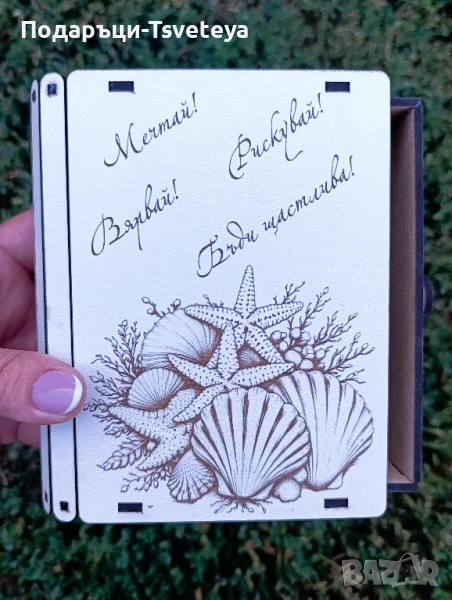 Подаръци-Tsveteya
Мечтай!
Рискувай!
Вярвай!
Бъди щастлива!
BAZAR